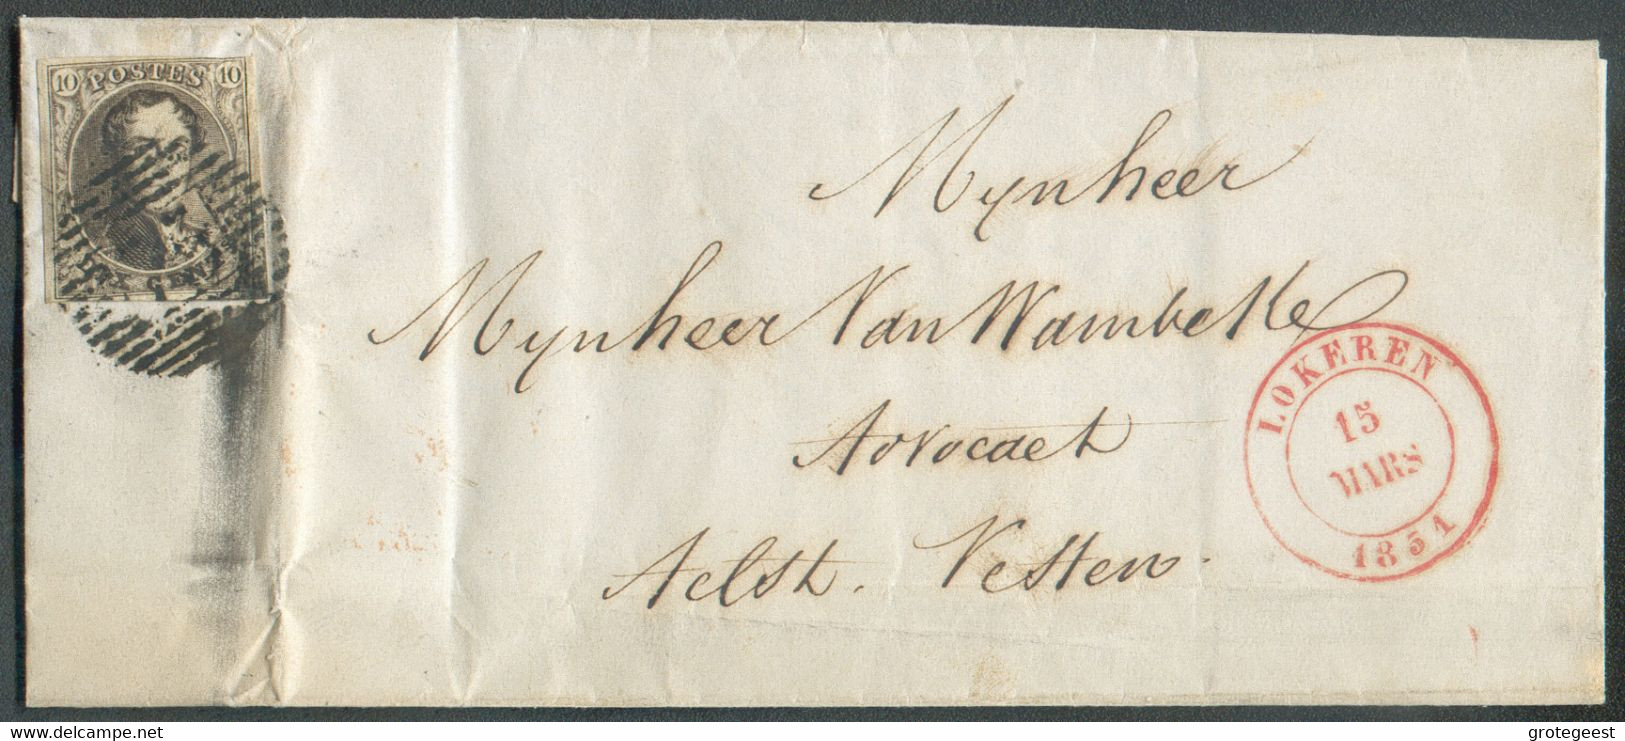 10 POSTES 10
Mynheer
Mynheer Van Wambeke
Advocaet
Aelst. Vesten.
LOKEREN
15
MARS
1851
grotegeest